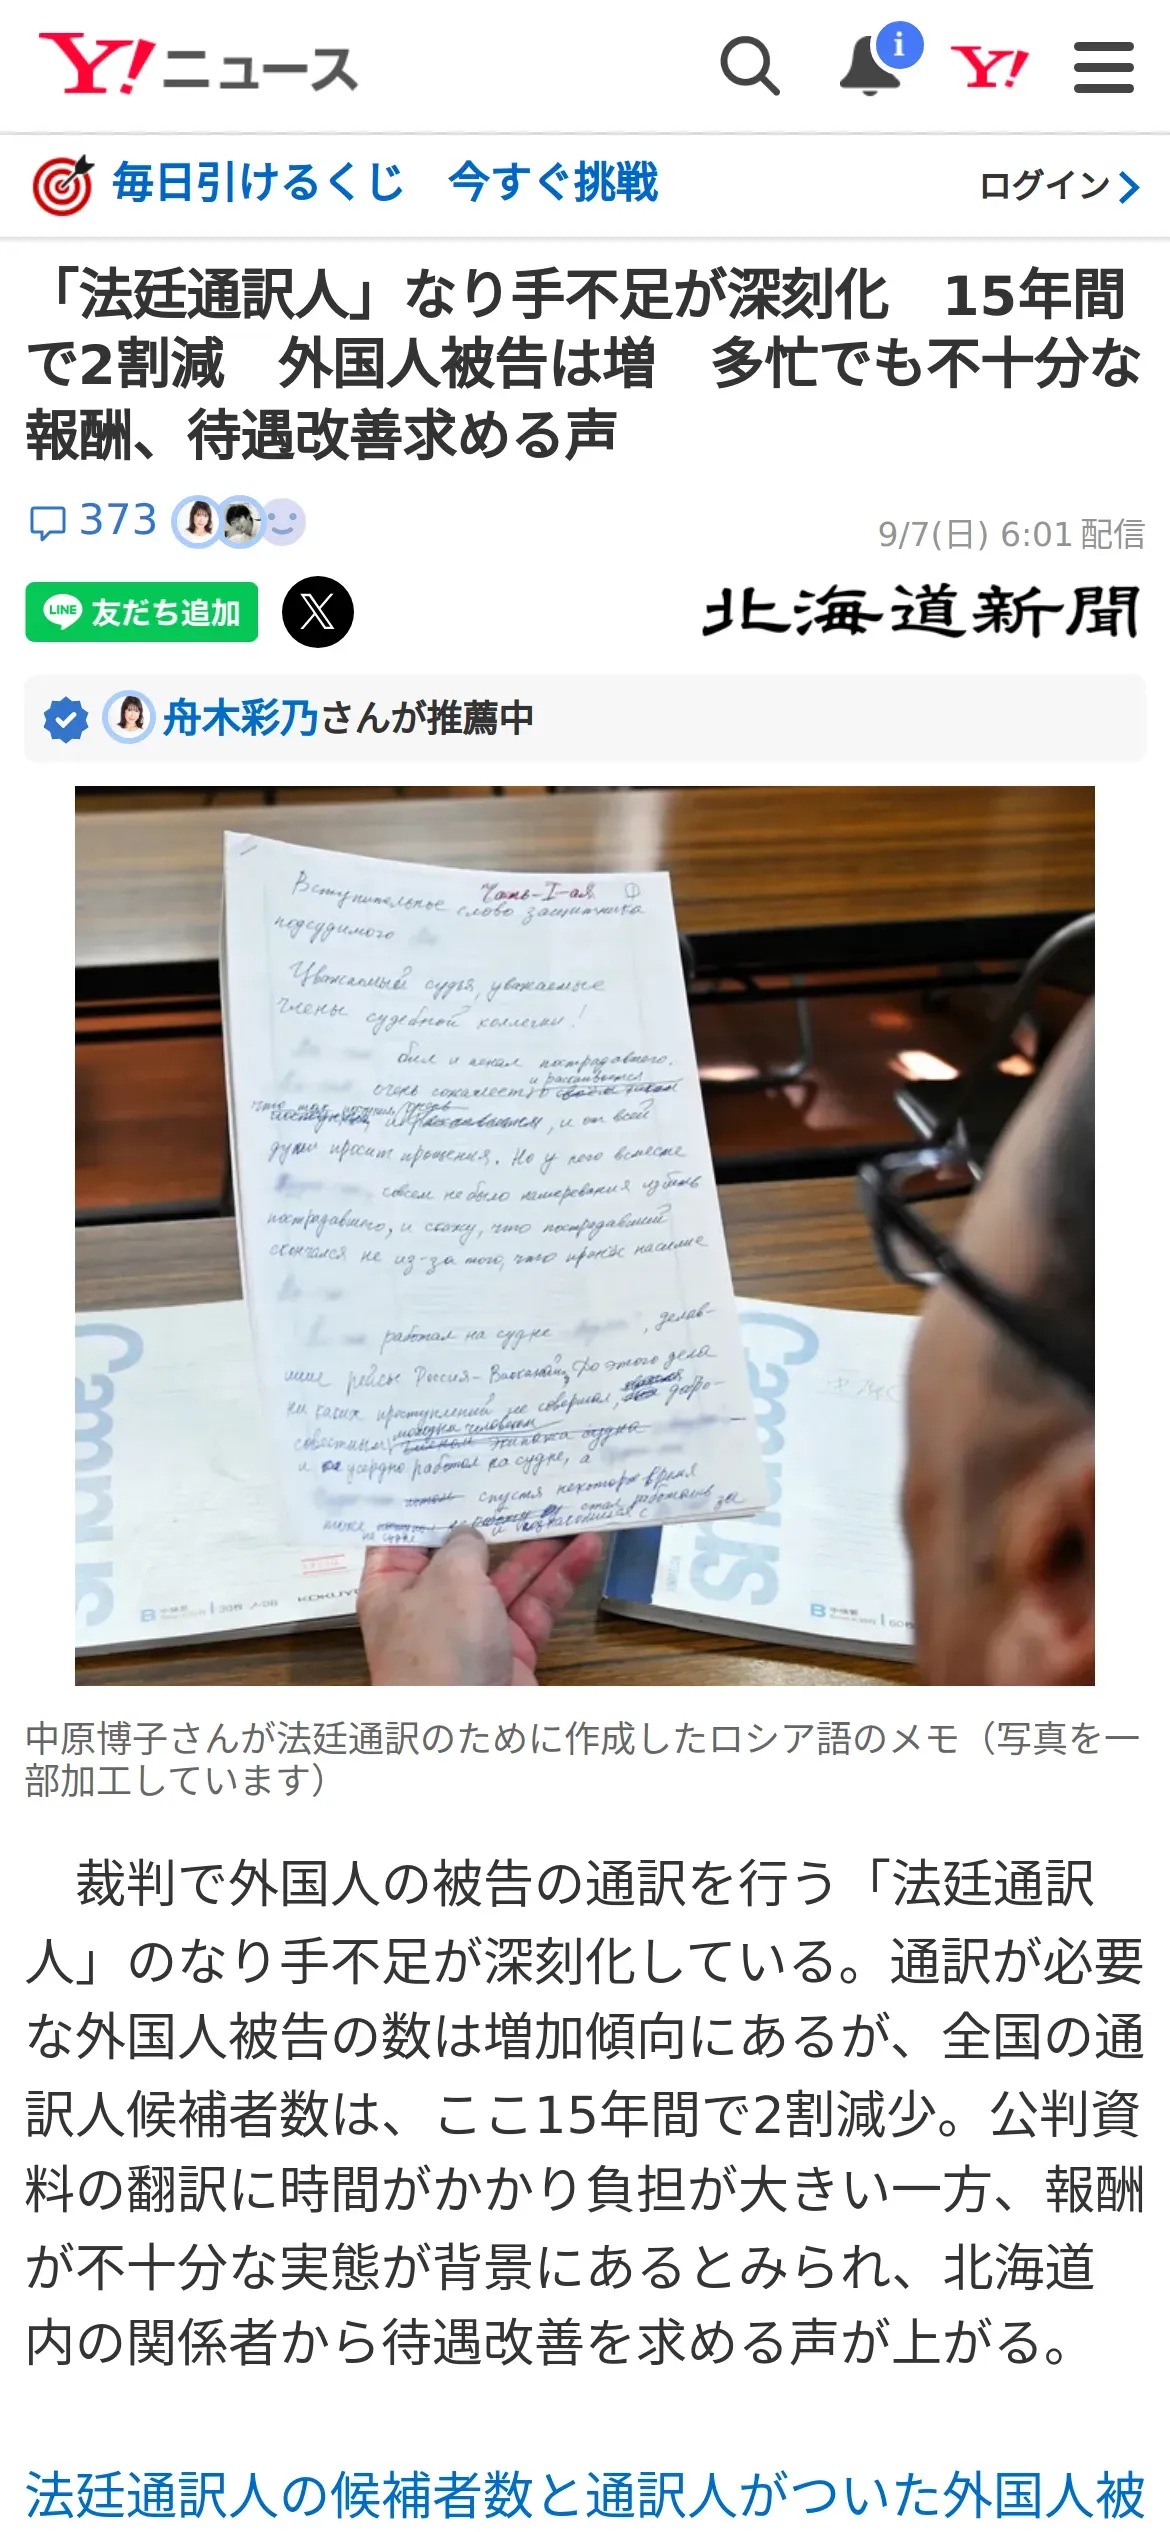 Y!ニュース
Y!
毎日引けるくじ　今すぐ挑戦
ログイン
「法廷通訳人」なり手不足が深刻化　15年間
で2割減　外国人被告は増　多忙でも不十分な
報酬、待遇改善求める声
373
9/7(日) 6:01 配信
LINE 友だち追加
X
北海道新聞
舟木彩乃さんが推薦中
Часть-I-ая
Вступительное слово защитника
подсудимого
Уважаемый судья, уважаемые
члены судебной коллегии!
бил и пинал пострадавшего.
очень
и от всей
души просит прощения. Но у него вместе
совсем не было намерения избить
пострадавшего, и скажу, что пострадавший
скончался не из-за того, что принёс насилие
работал на судне , делав-
шие рейсы Россия-
До этого дела
ни каких преступлений не совершал, добро-
и усердно работал на судне, а
спустя некоторое время
Campus
Campus
KOKUYO
中原博子さんが法廷通訳のために作成したロシア語のメモ（写真を一
部加工しています）
裁判で外国人の被告の通訳を行う「法廷通訳
人」のなり手不足が深刻化している。通訳が必要
な外国人被告の数は増加傾向にあるが、全国の通
訳人候補者数は、ここ15年間で2割減少。公判資
料の翻訳に時間がかかり負担が大きい一方、報酬
が不十分な実態が背景にあるとみられ、北海道
内の関係者から待遇改善を求める声が上がる。
法廷通訳人の候補者数と通訳人がついた外国人被